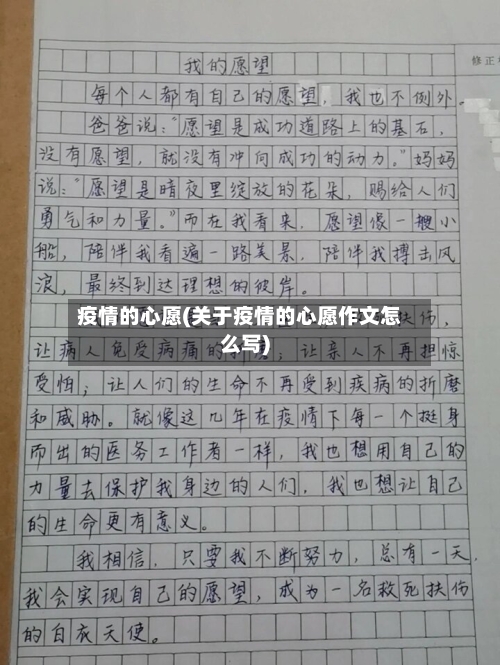 修正
我的愿望
每个人都有自己的愿望，我也不例外。
爸爸说：“愿望是成功道路上的基石，
没有愿望，就没有冲向成功的动力。”妈妈
说：“愿望是暗夜里绽放的花朵，赐给人们
勇气和力量。”而在我看来，愿望像一艘小
船，陪伴我看遍一路美景，陪伴我搏击风
浪，最终到达理想的彼岸。
疫情的心愿(关于疫情的心愿作文怎
么写)
扶伤，
让病人免受病痛的；让亲人不再担惊
受怕；让人们的生命不再受到疾病的折磨
和威胁。就像这几年在疫情下每一个挺身
而出的医务工作者一样，我也想用自己的
力量去保护我身边的人们，我也想让自己
的生命更有意义。
我相信，只要我不断努力，总有一天，
我会实现自己的愿望，成为一名救死扶伤
的白衣天使。